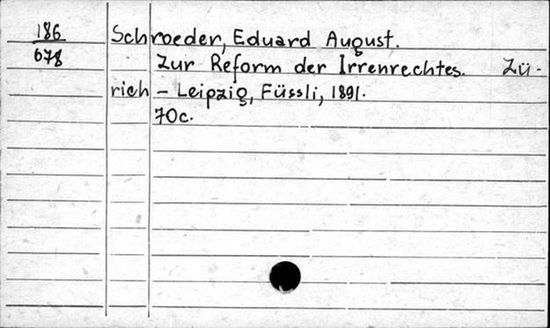 186 Schroeder, Eduard August.
678 Zur Reform der Irrenrechtes. Zü-
rich – Leipzig, Füssli, 1891.
70c.